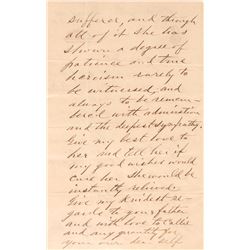 sufferer, and through
all of it she has
shown a degree of
patience and true
heroism rarely to
be witnessed, and
always to be remem-
bered with admiration
and the deepest sympathy.
Give my best love to
her and tell her if
my good wishes would
cure her she would be
instantly relieved.
Give my kindest re-
gards to your father
and with love to Callie
and any quantity for
your own dear self